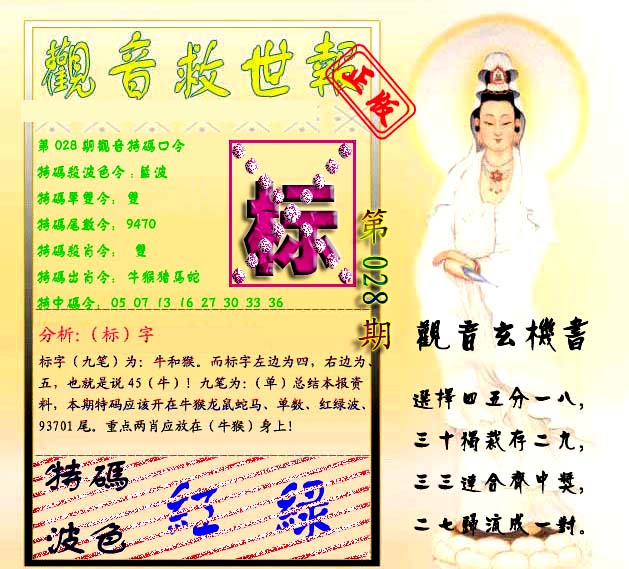 觀音救世報
正版
第028期觀音特碼口令
特碼殺波色令：藍波
特碼單雙令： 雙
特碼尾數令： 9470
特碼殺肖令： 雙
特碼出肖令： 牛猴猪馬蛇
特中碼令： 05 07 13 16 27 30 33 36
标
第028期
分析:（标）字
标字（九笔）为：牛和猴。而标字左边为四，右边为、
五，也就是说45（牛）！九笔为：（单）总结本报资
料，本期特码应该开在牛猴龙鼠蛇马、单数、红绿波、
93701尾。重点两肖应放在（牛猴）身上！
特碼
波色
紅 綠
觀音玄機書
選擇四五分一八，
三十獨裁存二九，
三三連合齊中獎，
二七歸流成一對。